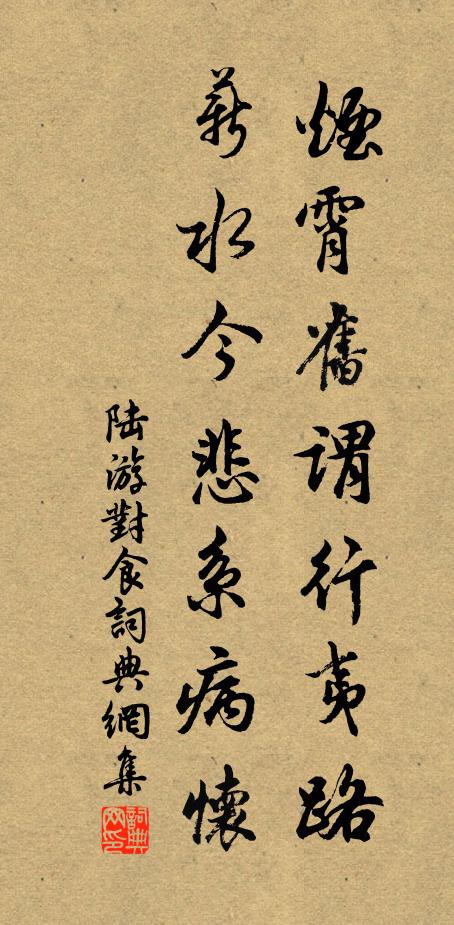 煙霄舊謂行夷路
薪水今悲系病懷
陸游對食詞典網集
詞典網印